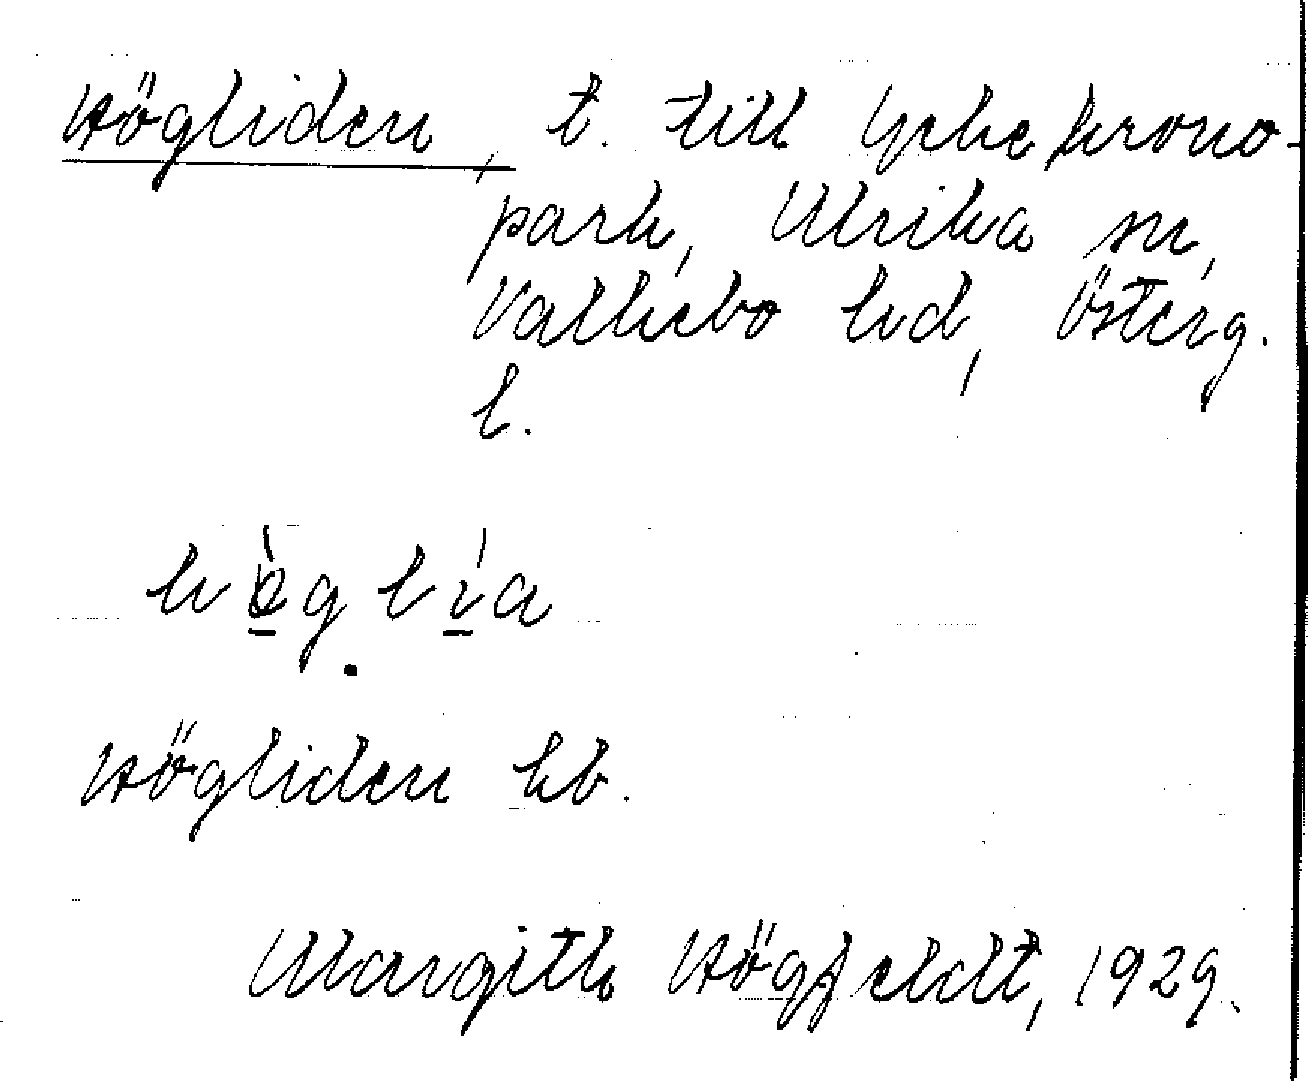 Högliden, t. till Yckekrono-
park, Ulrika sn,
Valkebo hd, Österg.
l.
hö̀glía
Högliden kb.
Margith Högfeldt, 1929.